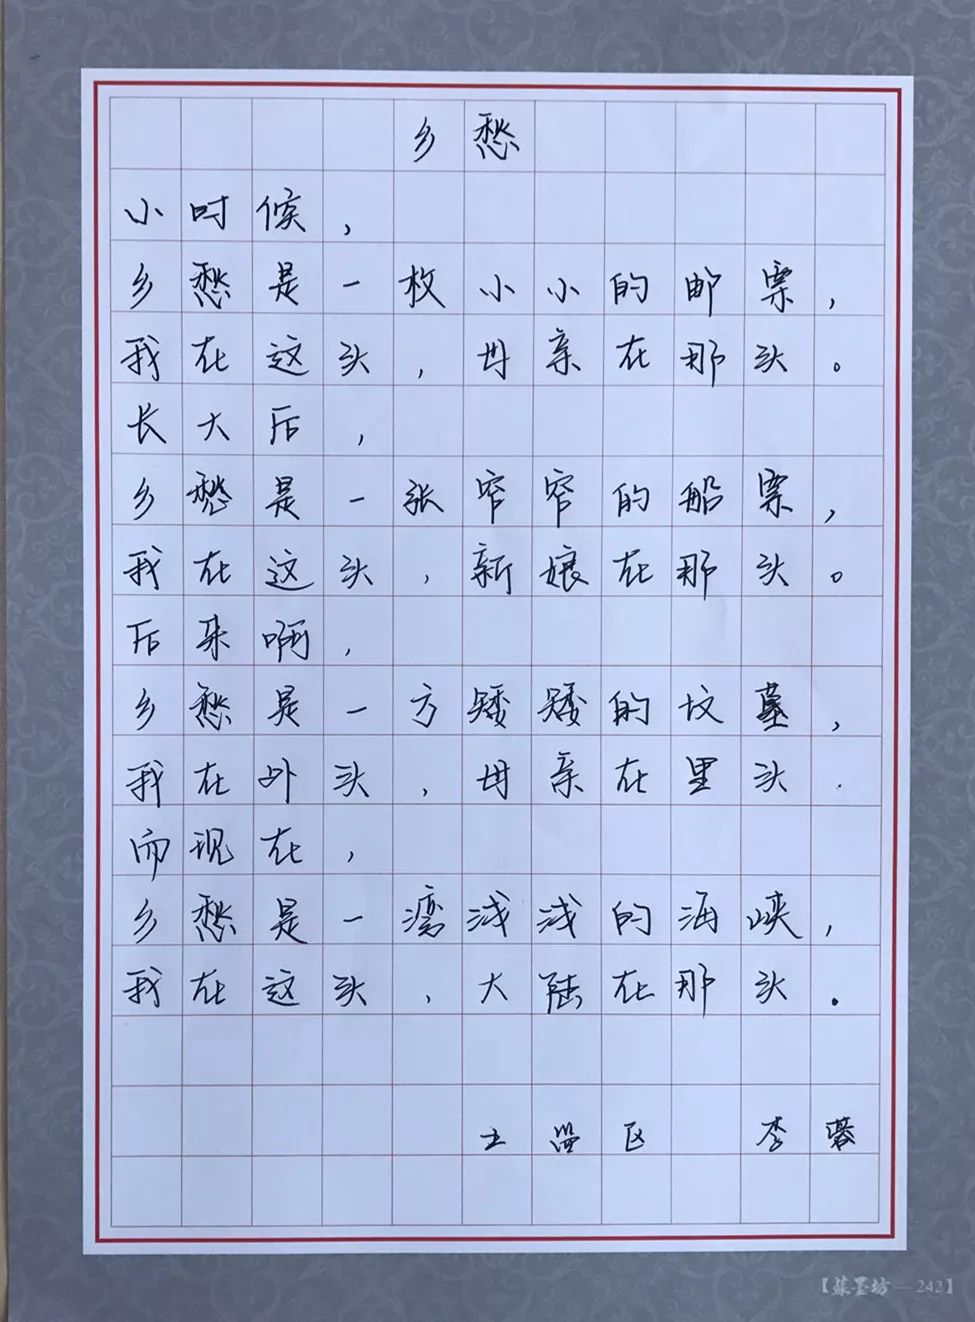 乡愁
小时候，
乡愁是一枚小小的邮票，
我在这头，母亲在那头。
长大后，
乡愁是一张窄窄的船票，
我在这头，新娘在那头。
后来啊，
乡愁是一方矮矮的坟墓，
我在外头，母亲在里头.
而现在，
乡愁是一湾浅浅的海峡，
我在这头，大陆在那头。
李蓉
【蕴墨坊—242】